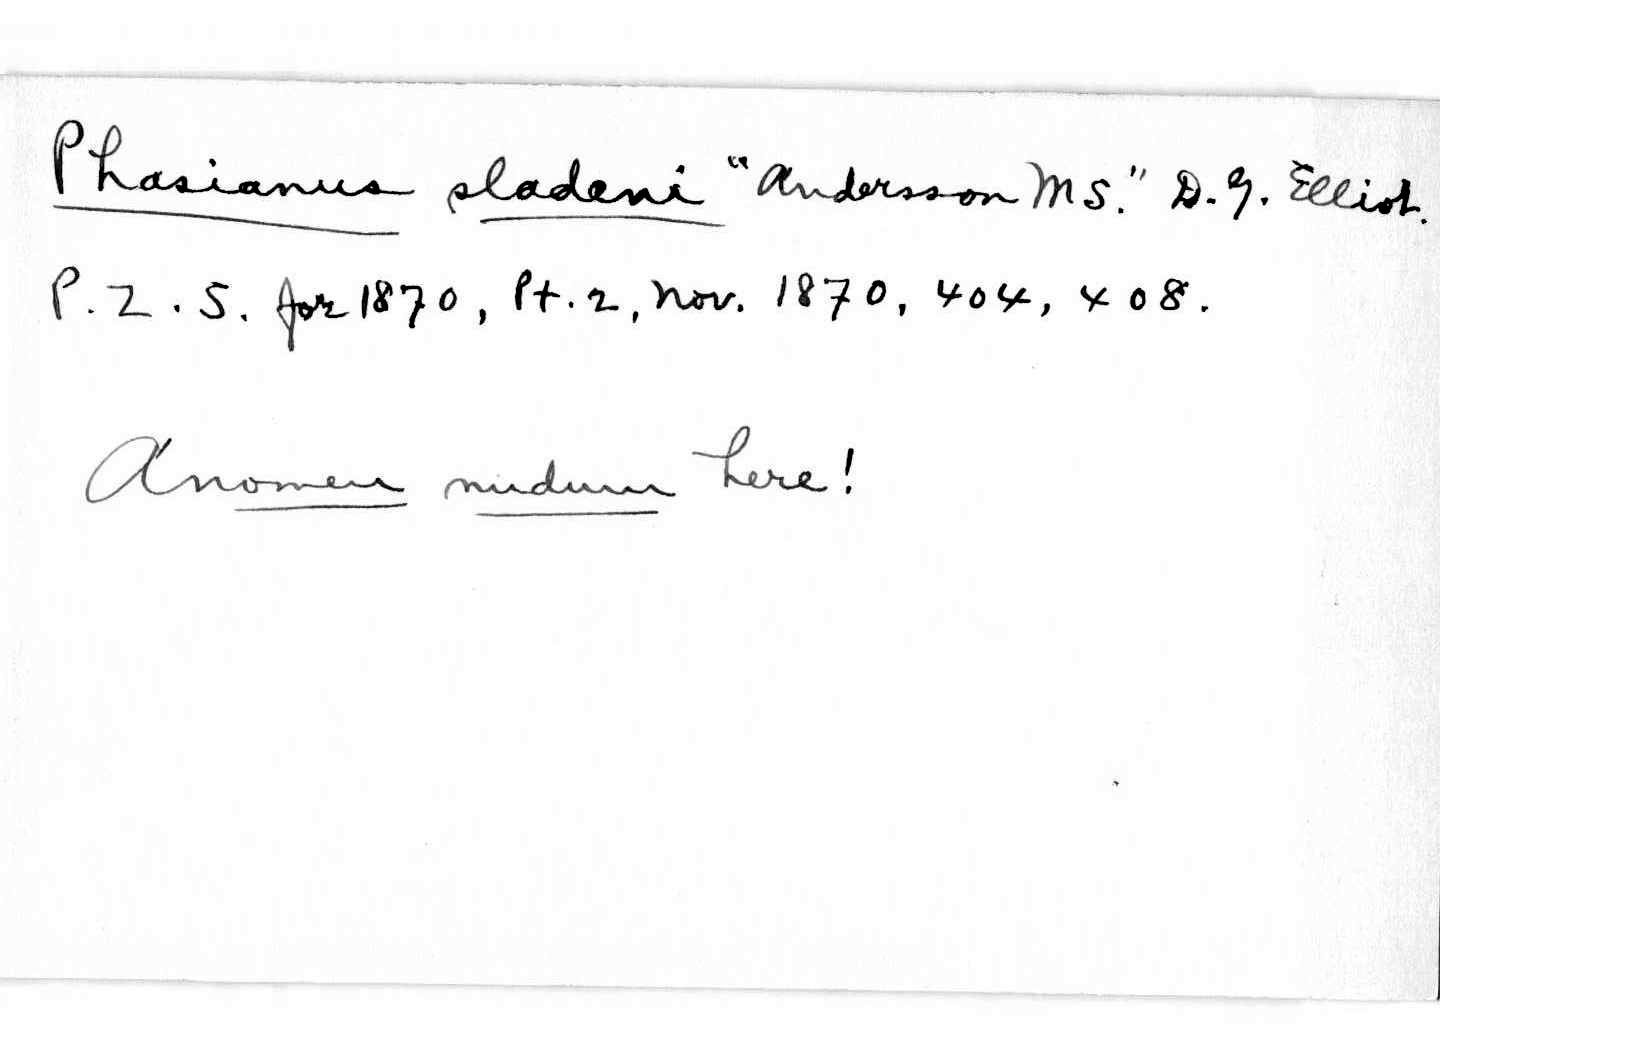 Phasianus sladeni "Andersson MS." D.G. Elliot.
P.Z.S. for 1870, Pt.2, Nov. 1870, 404, 408.
A nomen nudum here!